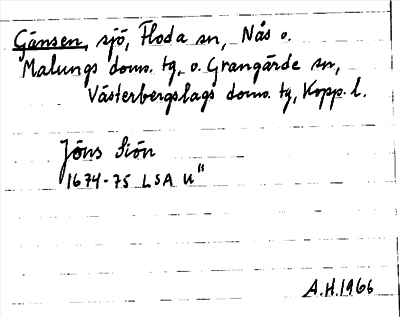 Gänsen, sjö, Floda sn, Nås o.
Malungs doms. tg, o. Grangärde sn,
Västerbergslags doms. tg, Kopp. l.
Jöns Siön
1674-75 LSA U"
A.H. 1966